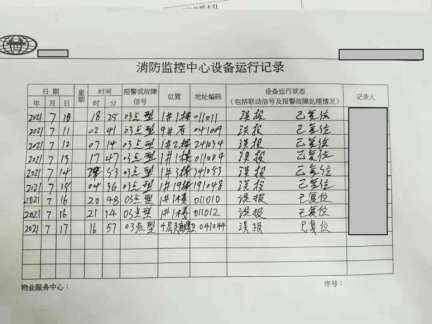 消防监控中心设备运行记录
日期 星期 时间 报警或故障信号 位置 地址编码 设备运行状态(包括联动信号及报警故障处理情况) 记录人
年 月 日 时 分
2021 7 10 18 25 03点型 1#1楼 011011 误报 已复位
2021 7 11 02 41 03点型 9# 041009 误报 已复位
2021 7 12 07 14 03点型 1#2楼 241034 误报 已复位
2021 7 13 17 47 03点型 1#1楼 011004 误报 已复位
2021 7 14 53 03点型 1#3楼 341053 误报 已复位
2021 7 15 04 36 03点型 1#19楼 191048 误报 已复位
2021 7 16 20 48 03点型 1#1楼 011010 误报 已复位
2021 7 16 21 14 03点型 1#1楼 011012 误报 已复位
2021 7 17 16 57 03点型 041044 误报 已复位
物业服务中心: 序号: